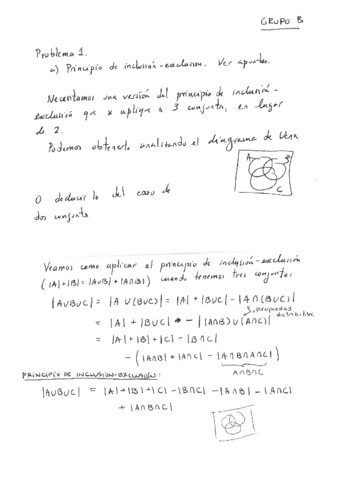 GRUPO B
Problema 1.
a) Principio de inclusión-exclusión. Ver apuntes.
Necesitamos una versión del principio de inclusión-
exclusión que se aplique a 3 conjuntos, en lugar
de 2.
Podemos obtenerlo analizando el diagrama de Venn
A B
C
O deducirlo del caso de
dos conjuntos
Veamos como aplicar el principio de inclusión-exclusión
(|A|+|B| = |A∪B| + |A∩B|) cuando tenemos tres conjuntos:
|A∪B∪C| = |A ∪ (B∪C)| = |A| + |B∪C| - |A∩(B∪C)|
propiedad
distributiva
= |A| + |B∪C| - |(A∩B)∪(A∩C)|
= |A| + |B| + |C| - |B∩C|
- (|A∩B| + |A∩C| - |A∩B∩A∩C|)
A∩B∩C
PRINCIPIO DE INCLUSIÓN-EXCLUSIÓN:
|A∪B∪C| = |A| + |B| + |C| - |B∩C| - |A∩B| - |A∩C|
+ |A∩B∩C|